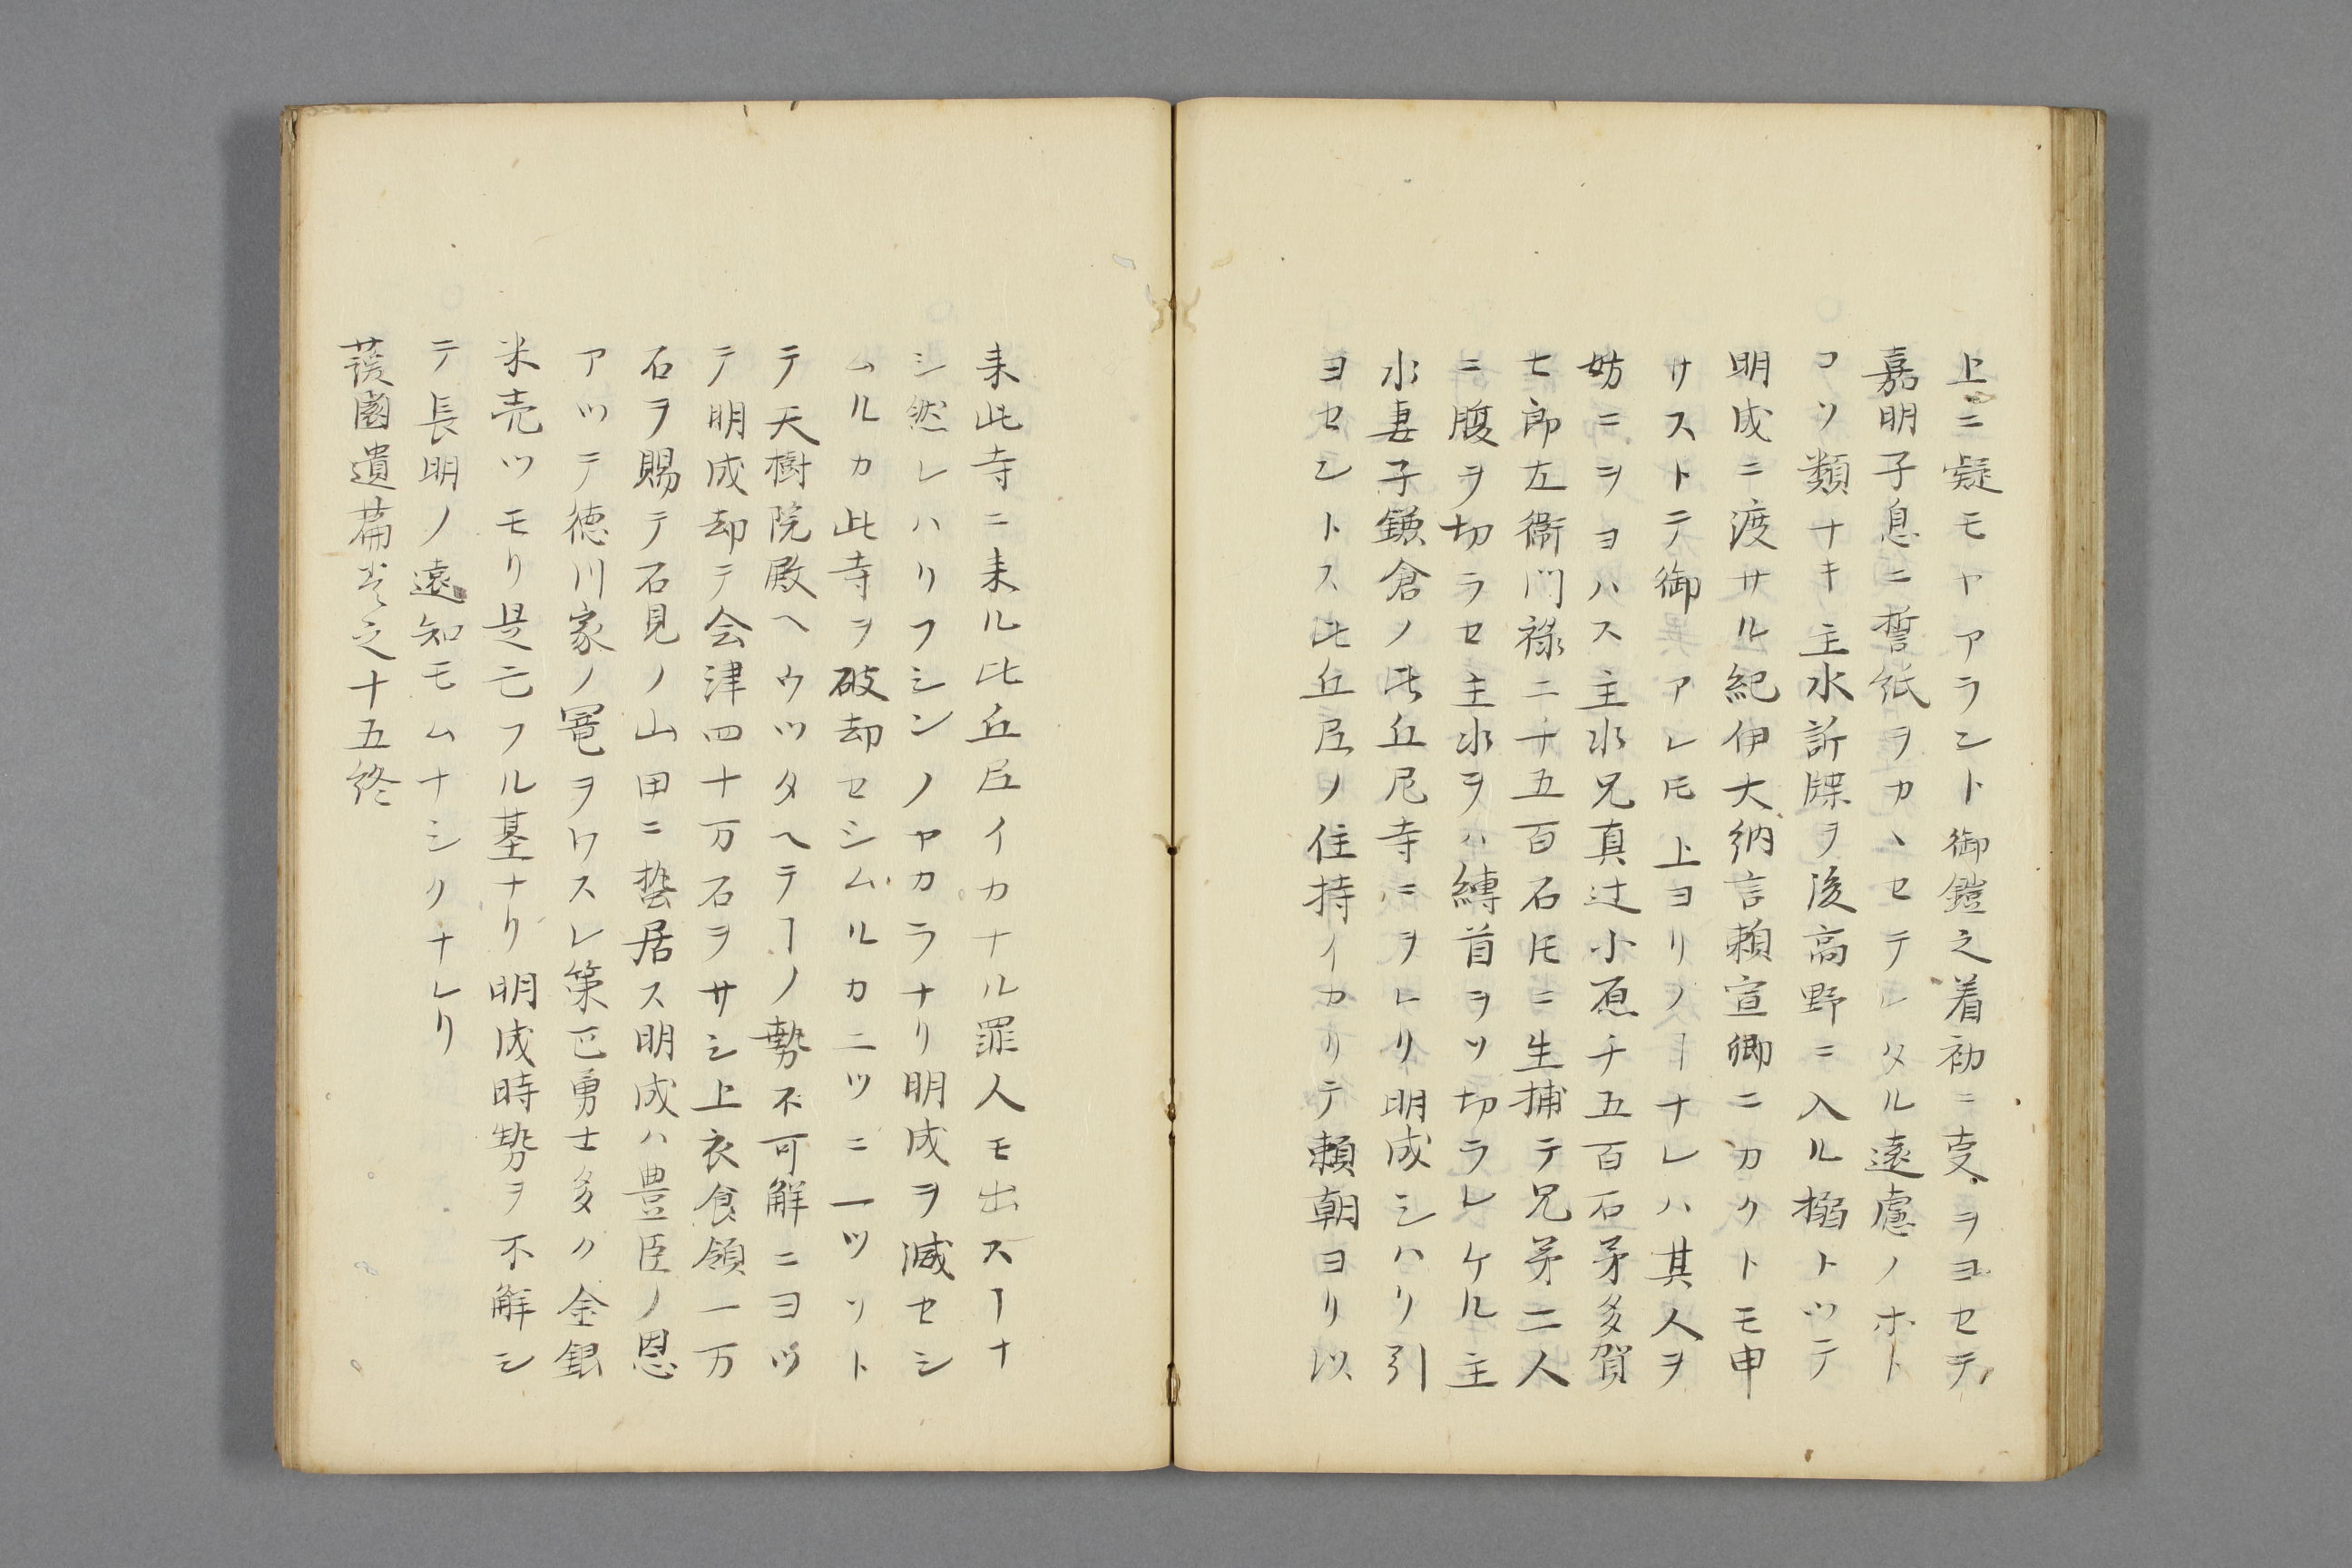 上ニ疑モヤアラント御鎧之着初ニ支ヲヨセテ
嘉明子息ニ誓紙ヲカヽセテレタル遠慮ノホト
コソ類ナキ主水訴牒ヲ後高野ニ入ル搦トツテ
明成ニ渡サル紀伊大納言頼宣卿ニカクトモ申
サストテ御アレ𪜈上ヨリノヿナレハ其人ヲ
妨ニヲヨハス主水兄真辺小原千五百石弟多賀
七郎左衛門禄二千五百石𪜈ニ生捕テ兄弟二人
ニ腹ヲ切ラセ主水ヲハ縛首ヲツ切ラレケル主
水妻子鎌倉ノ比丘尼寺ニヲレリ明成シハリ引
ヨセントス比丘尼ノ住持イカリテ頼朝ヨリ以
来此寺ニ来ル比丘尼イカナル罪人モ出スヿナ
シ然レハリフシンノヤカラナリ明成ヲ滅セシ
ムルカ此寺ヲ破却セシムルカ二ツニ一ツソト
テ天樹院殿ヘウツタヘテヿノ勢不可解ニヨツ
テ明成却テ会津四十万石ヲサシ上衣食領一万
石ヲ賜テ石見ノ山田ニ蟄居ス明成ハ豊臣ノ恩
アツテ徳川家ノ竈ヲワスレ第一勇士多ク金銀
米売ツモリ是亡フル基ナリ明成時勢ヲ不解シ
テ長明ノ遠知モムナシクナレリ
護園遺篇巻之十五終